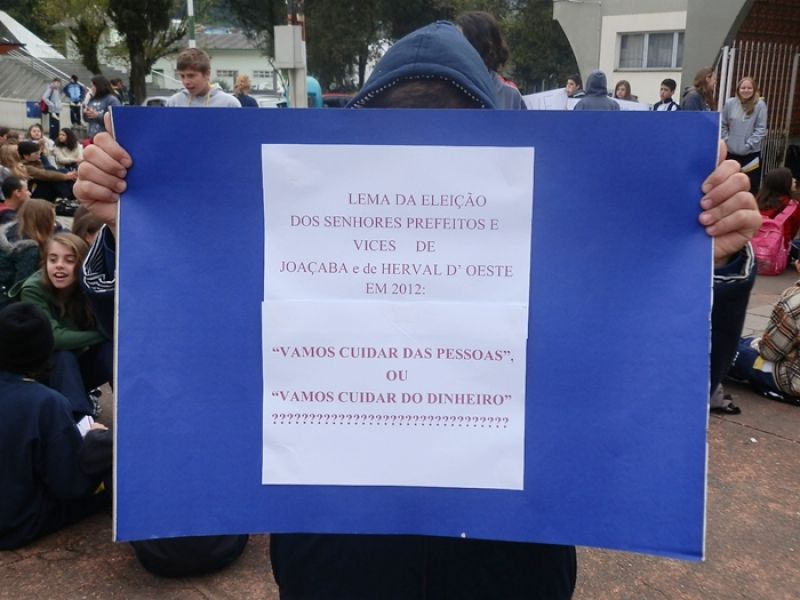 LEMA DA ELEIÇÃO
DOS SENHORES PREFEITOS E
VICES DE
JOAÇABA e de HERVAL D' OESTE
EM 2012:
“VAMOS CUIDAR DAS PESSOAS”,
OU
“VAMOS CUIDAR DO DINHEIRO”
????????????????????????????????